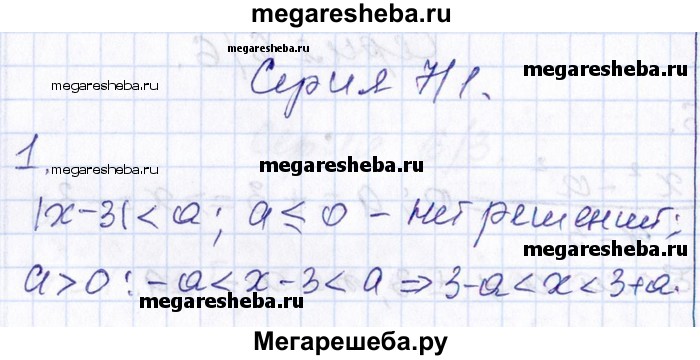 megaresheba.ru
megaresheba.ru megaresheba.ru
Серия 7/1.
1.
megaresheba.ru
|x-3| < a; a ≤ 0 - нет решений;
megaresheba.ru
a > 0: -a < x-3 < a ⇒ 3-a < x < 3+a.
megaresheba.ru
Мегарешеба.ру